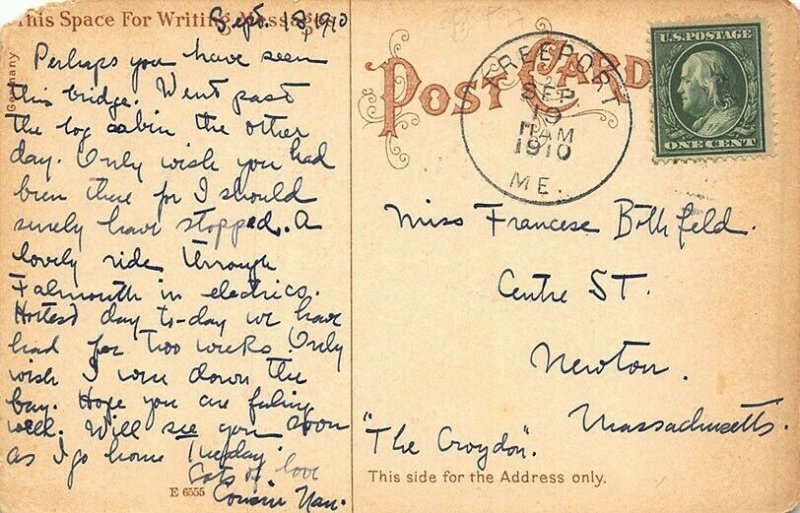 This Space For Writing Messages
Sept. 18, 1910
Germany
Perhaps you have seen
this bridge. Went past
the log cabin the other
day. Only wish you had
been there for I should
surely have stopped. A
lovely ride through
Falmouth in electrics.
Hottest day to-day we have
had for two weeks. Only
wish I were down the
bay. Hope you are feeling
well. Will see you soon
as I go home Tuesday.
Lots of love
Cousin Nan.
E 6555
POST CARD
FREEPORT
SEP
19
11 AM
1910
ME.
U.S. POSTAGE
ONE CENT
Miss Francese Bothfeld.
Centre St.
Newton.
Massachusetts.
"The Croydon".
This side for the Address only.